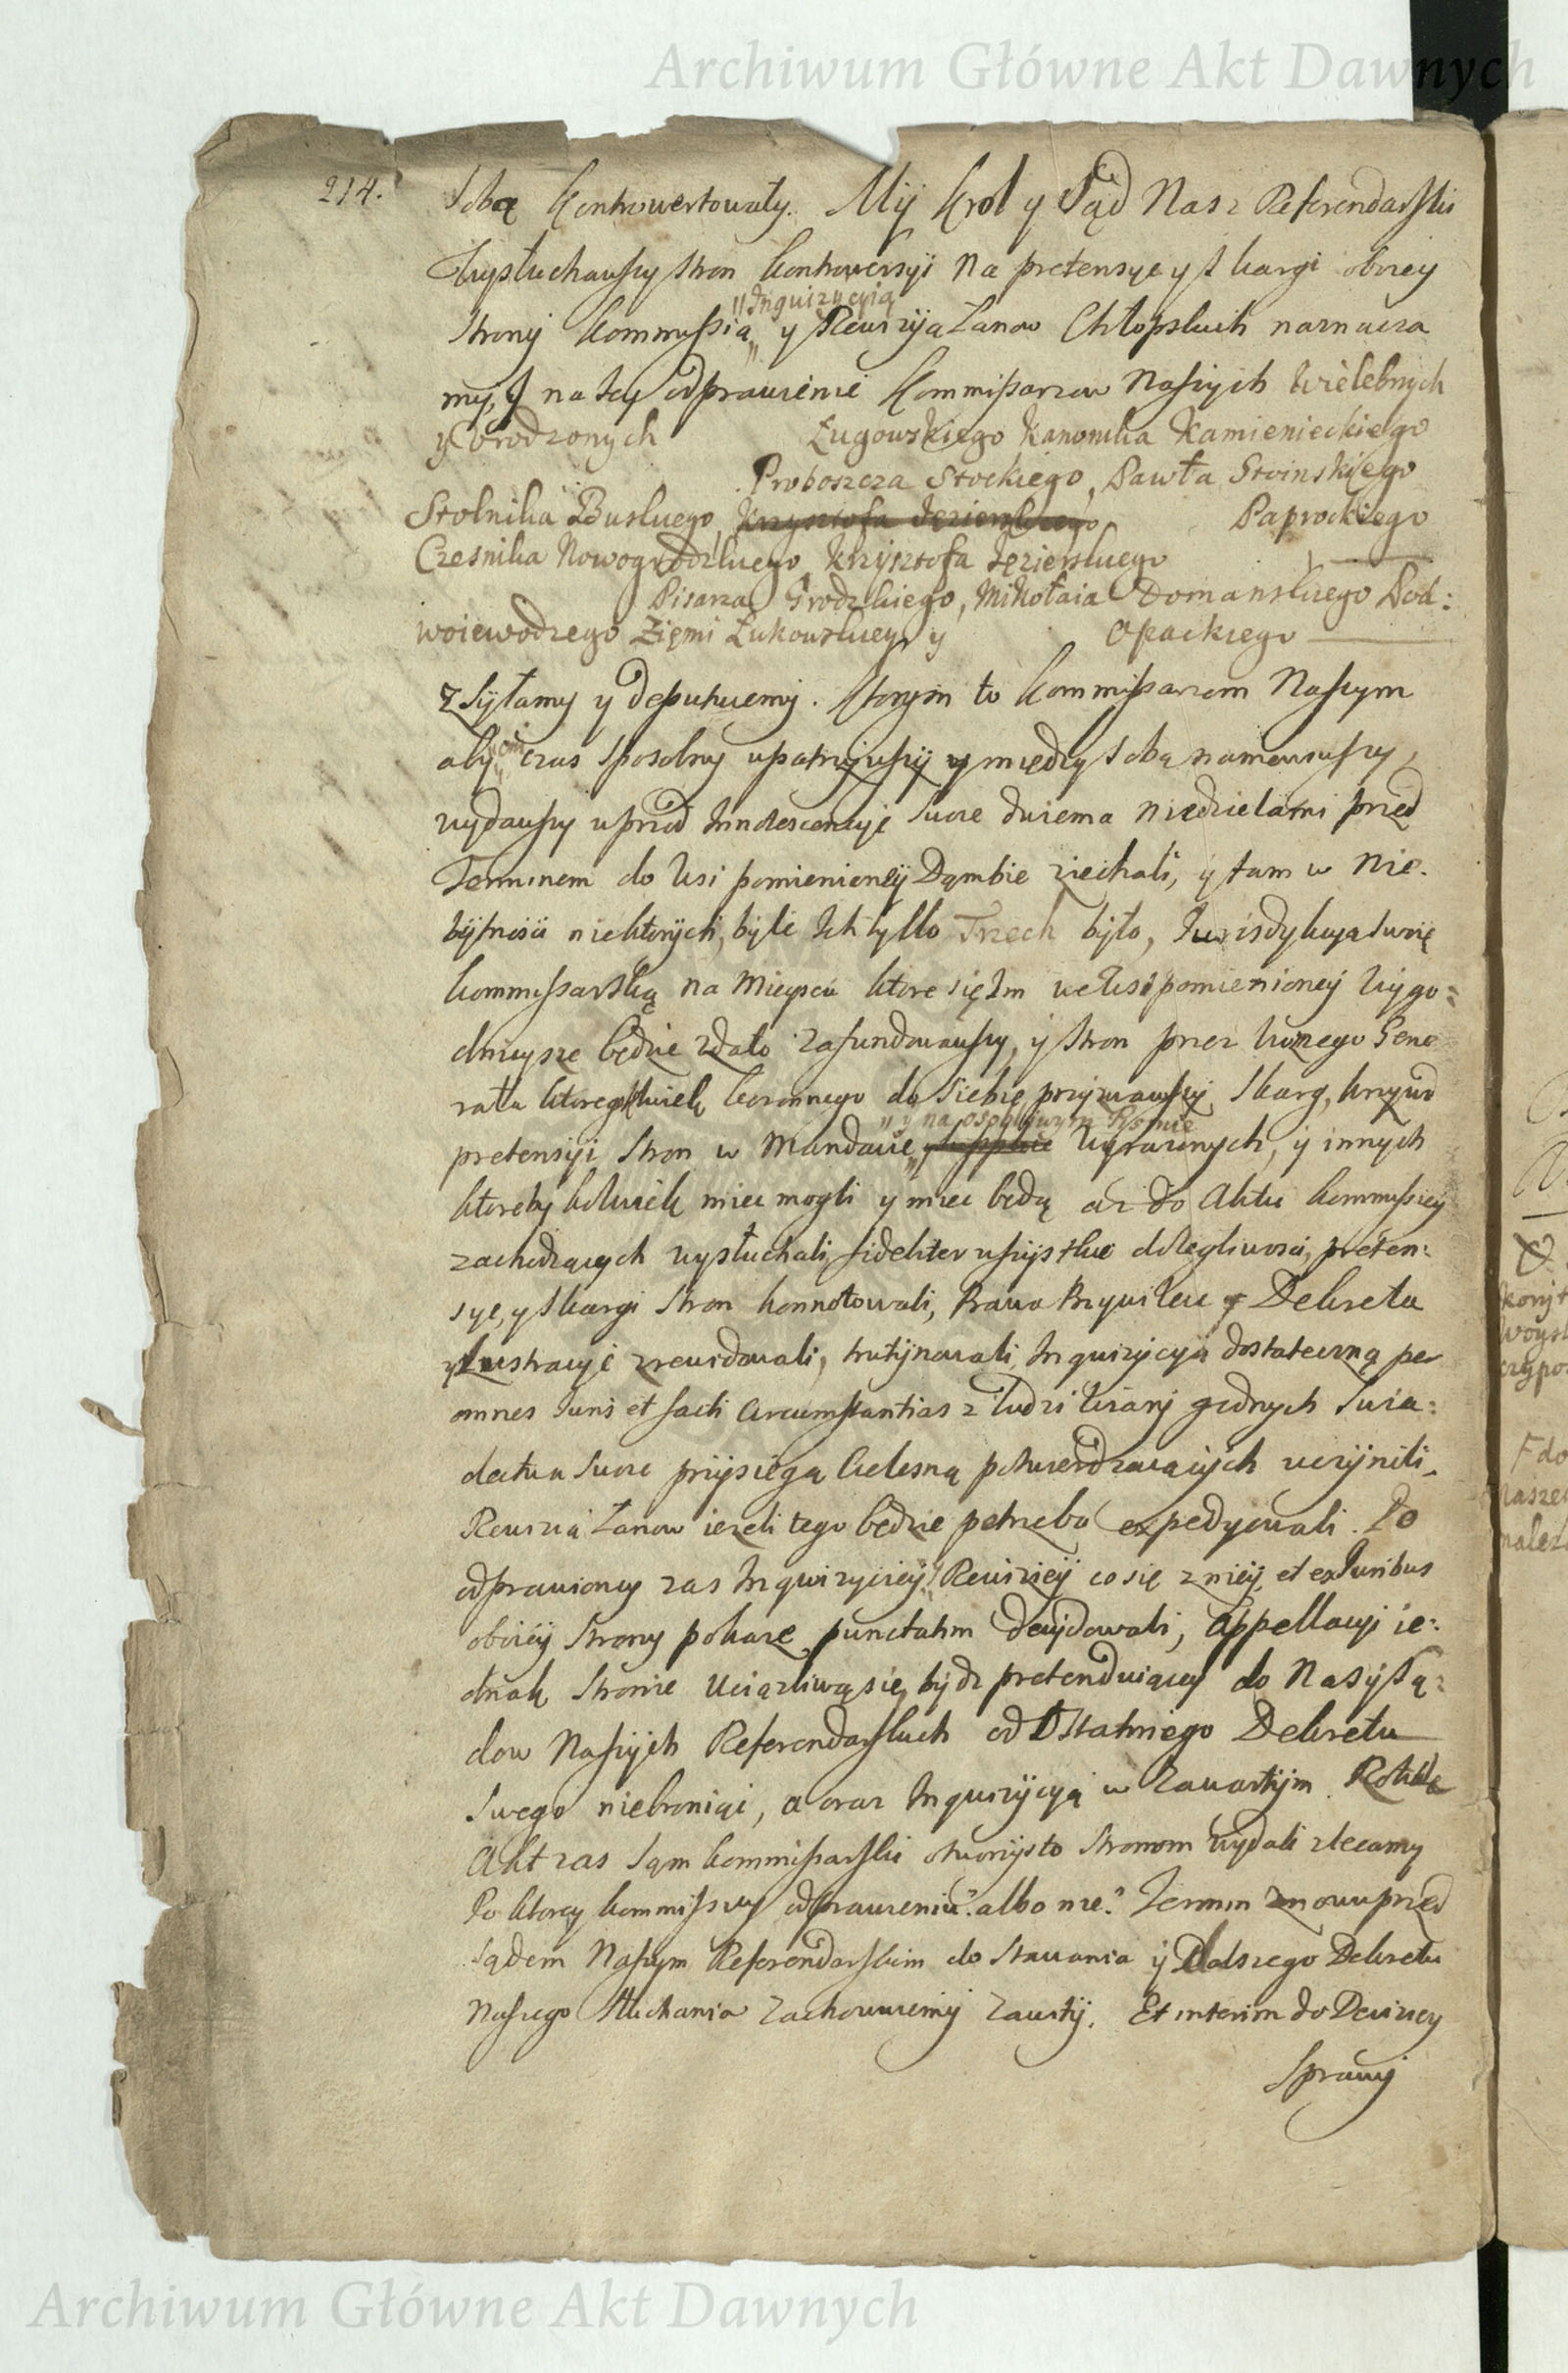 Archiwum Główne Akt Dawnych
214.
sobą kontrowertowały. My Krol y Sąd Nasz Referendarski
wysłuchawszy stron kontrowersyi na pretensye y skargi oboiey
"Inquizycyią
strony kommissią „ y Rewizyją Łanow Chłopskich naznacza
my, y na tey odprawienie Kommissarzow Naszych Wielebnych
y Urodzonych Ługowskiego Kanonika Kamienieckiego
Proboszcza Stockiego, Pawła Stoinskiego
Stolnika Buskiego, Krzysztofa Jezierskiego, Paprockiego
Czesnika Nowogrodzkiego, Krzysztofa Jezierskiego
Pisarza Grodzkiego, Mikołaia Domanskiego Pod:
woiewodzego Ziemi Łukowskiey y Opackiego
zsyłamy y deputuiemy. Ktorym to Kommissarzom Naszym
aby oni czas sposobny upatrzywszy y między sobą namowiwszy,
wydawszy wprzod Innotescencyje swoie dwiema niedzielami przed
Terminem do Wsi pomienioney Dąmbie ziechali, y tam w nie-
bytnosci niektorych, byle Ich tylko Trzech było, Jurisdykcyą swoię
kommissarską na Mieyscu ktore się Im we Wsi pomienioney wygo=
dnieysze będzie zdało zafundowawszy, y stron przez Woznego Gene
rała ktoregokolwiek koronnego do siebie przyzwawszy, skarg, krzywd
"y na osobliwym Pismie
pretensyi stron w Mandacie „ supplice wyrazonych, y innych
ktoreby kolwiek miec mogli y miec będą az do Aktu kommissyey
zachodzących wysłuchali, fideliter wszystkie dolegliwosci, preten:
sye, y skargi stron konnotowali, Prawa Przywileie y Dekreta
y Lustracyje zrewidowali, trutynowali, Inquizycyią dostateczną per
omnes Juris et facti circumstantias z ludzi wiary godnych swia:
dectwa swoie przysięgą cielesną potwierdzaiących uczynili,
Rewizią Łanow iezeli tego będzie potrzeba expedyowali. Po
odprawioney zas Inquizycyiey y Rewiziey co się z niey, et ex Juribus
oboiey strony pokaze, punctatim decydowali, Appellacyi ie:
dnak stronie uciązliwą się bydz pretenduiącey do Naszych Są:
dow Naszych Referendarskich od Ostatniego Dekretu
swego niebroniąc, a oraz Inquizycyią w zawartym Rotule
Akt zas sąm kommissarski otworzysto stronom wydali zlecamy
Po ktorey kommissyey odprawieniu? albo nie? Termin znowu przed
sądem Naszym Referendarskim do stawania y Dalszego Dekretu
Naszego słuchania zachowuiemy zawity. Et interim do Decizyey
Sprawy
Archiwum Główne Akt Dawnych